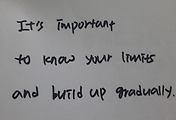 It's important
to know your limits
and build up gradually.